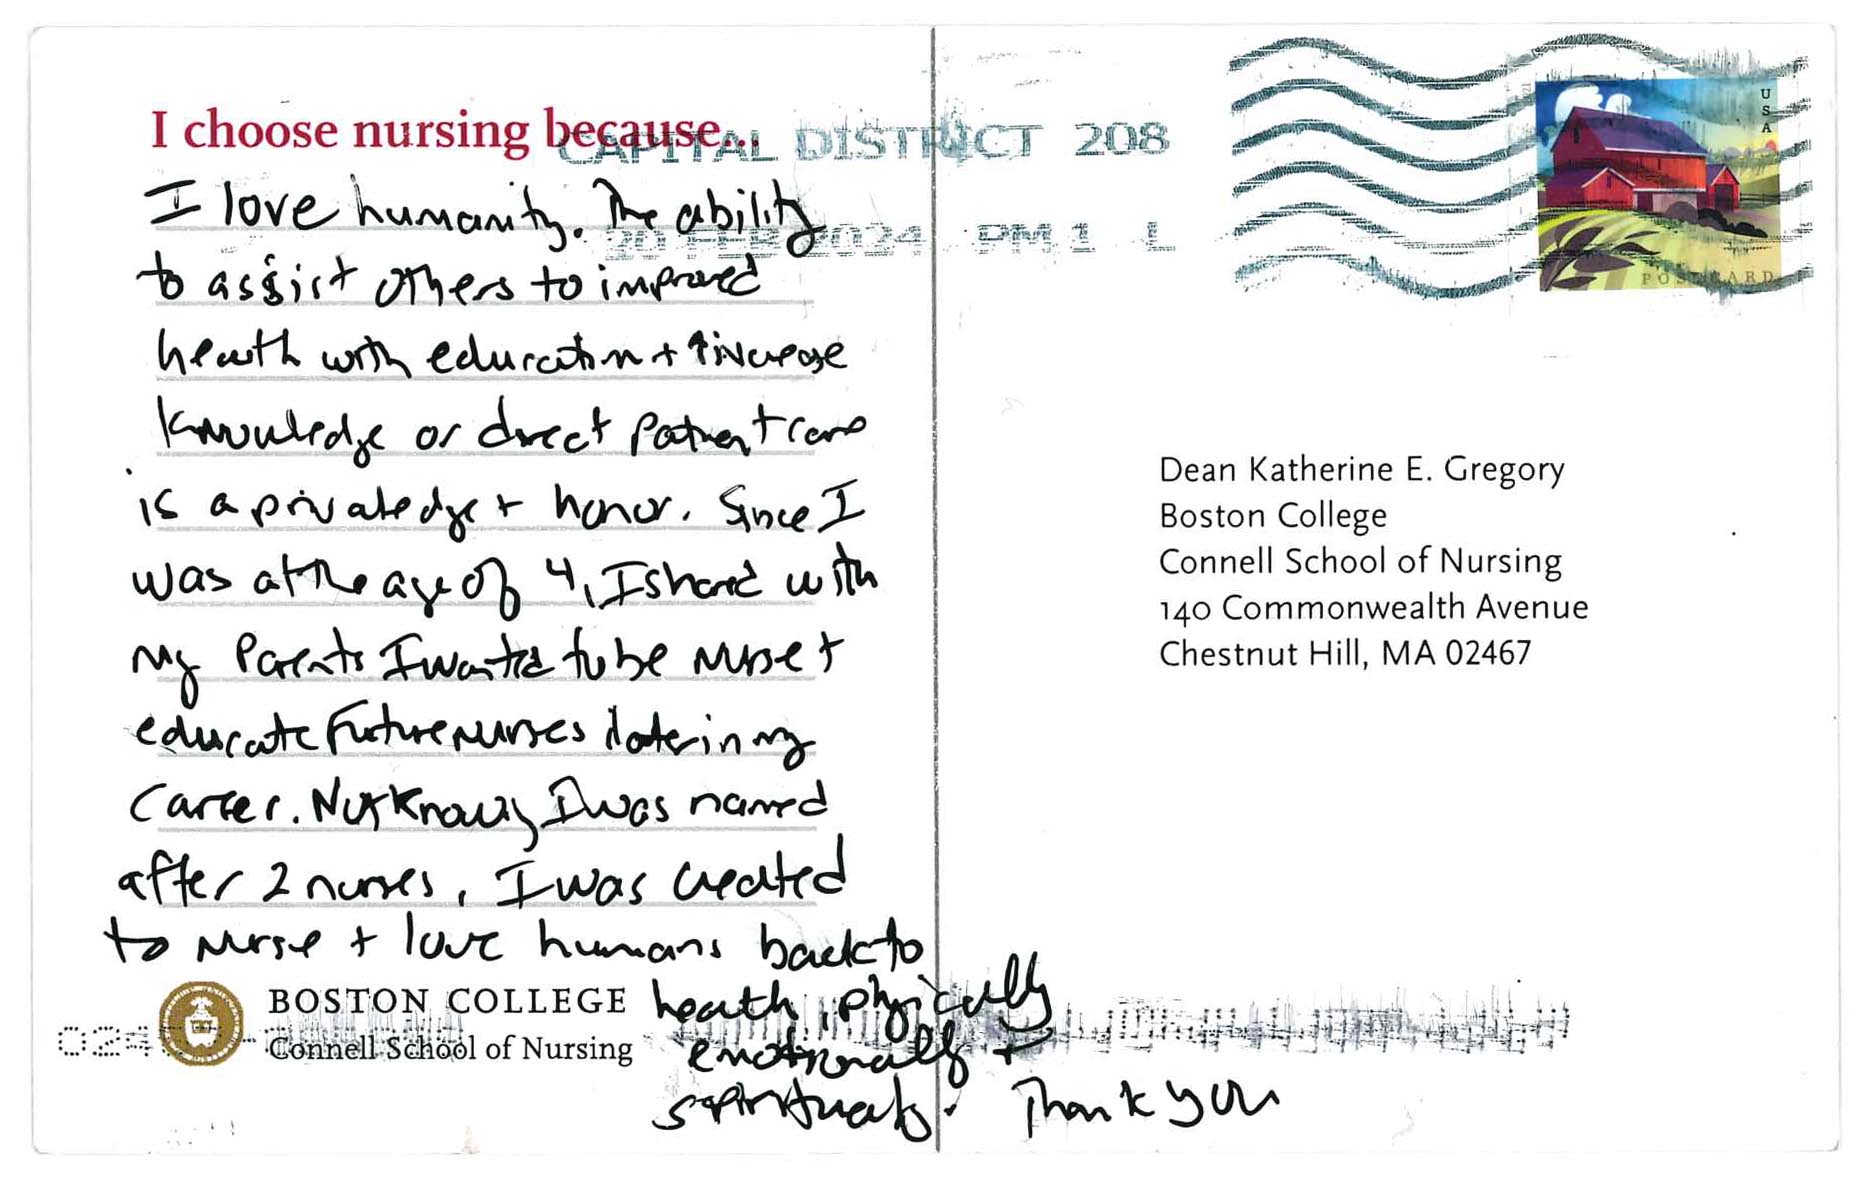 I choose nursing because...
I love humanity. The ability
to assist others to improved
health with education + ↑increase
knowledge or direct patient care
is a privaledge + honor. Since I
was at the age of 4, I shared with
my parents I wanted to be nurse +
educate future nurses later in my
career. Not knowing I was named
after 2 nurses, I was created
to nurse + love humans back to
health, physically
emotionally +
spiritually. Thank you
BOSTON COLLEGE
Connell School of Nursing
CAPITAL DISTRICT 208
20 FEB 2024 PM 1 L
USA
POSTCARD
Dean Katherine E. Gregory
Boston College
Connell School of Nursing
140 Commonwealth Avenue
Chestnut Hill, MA 02467